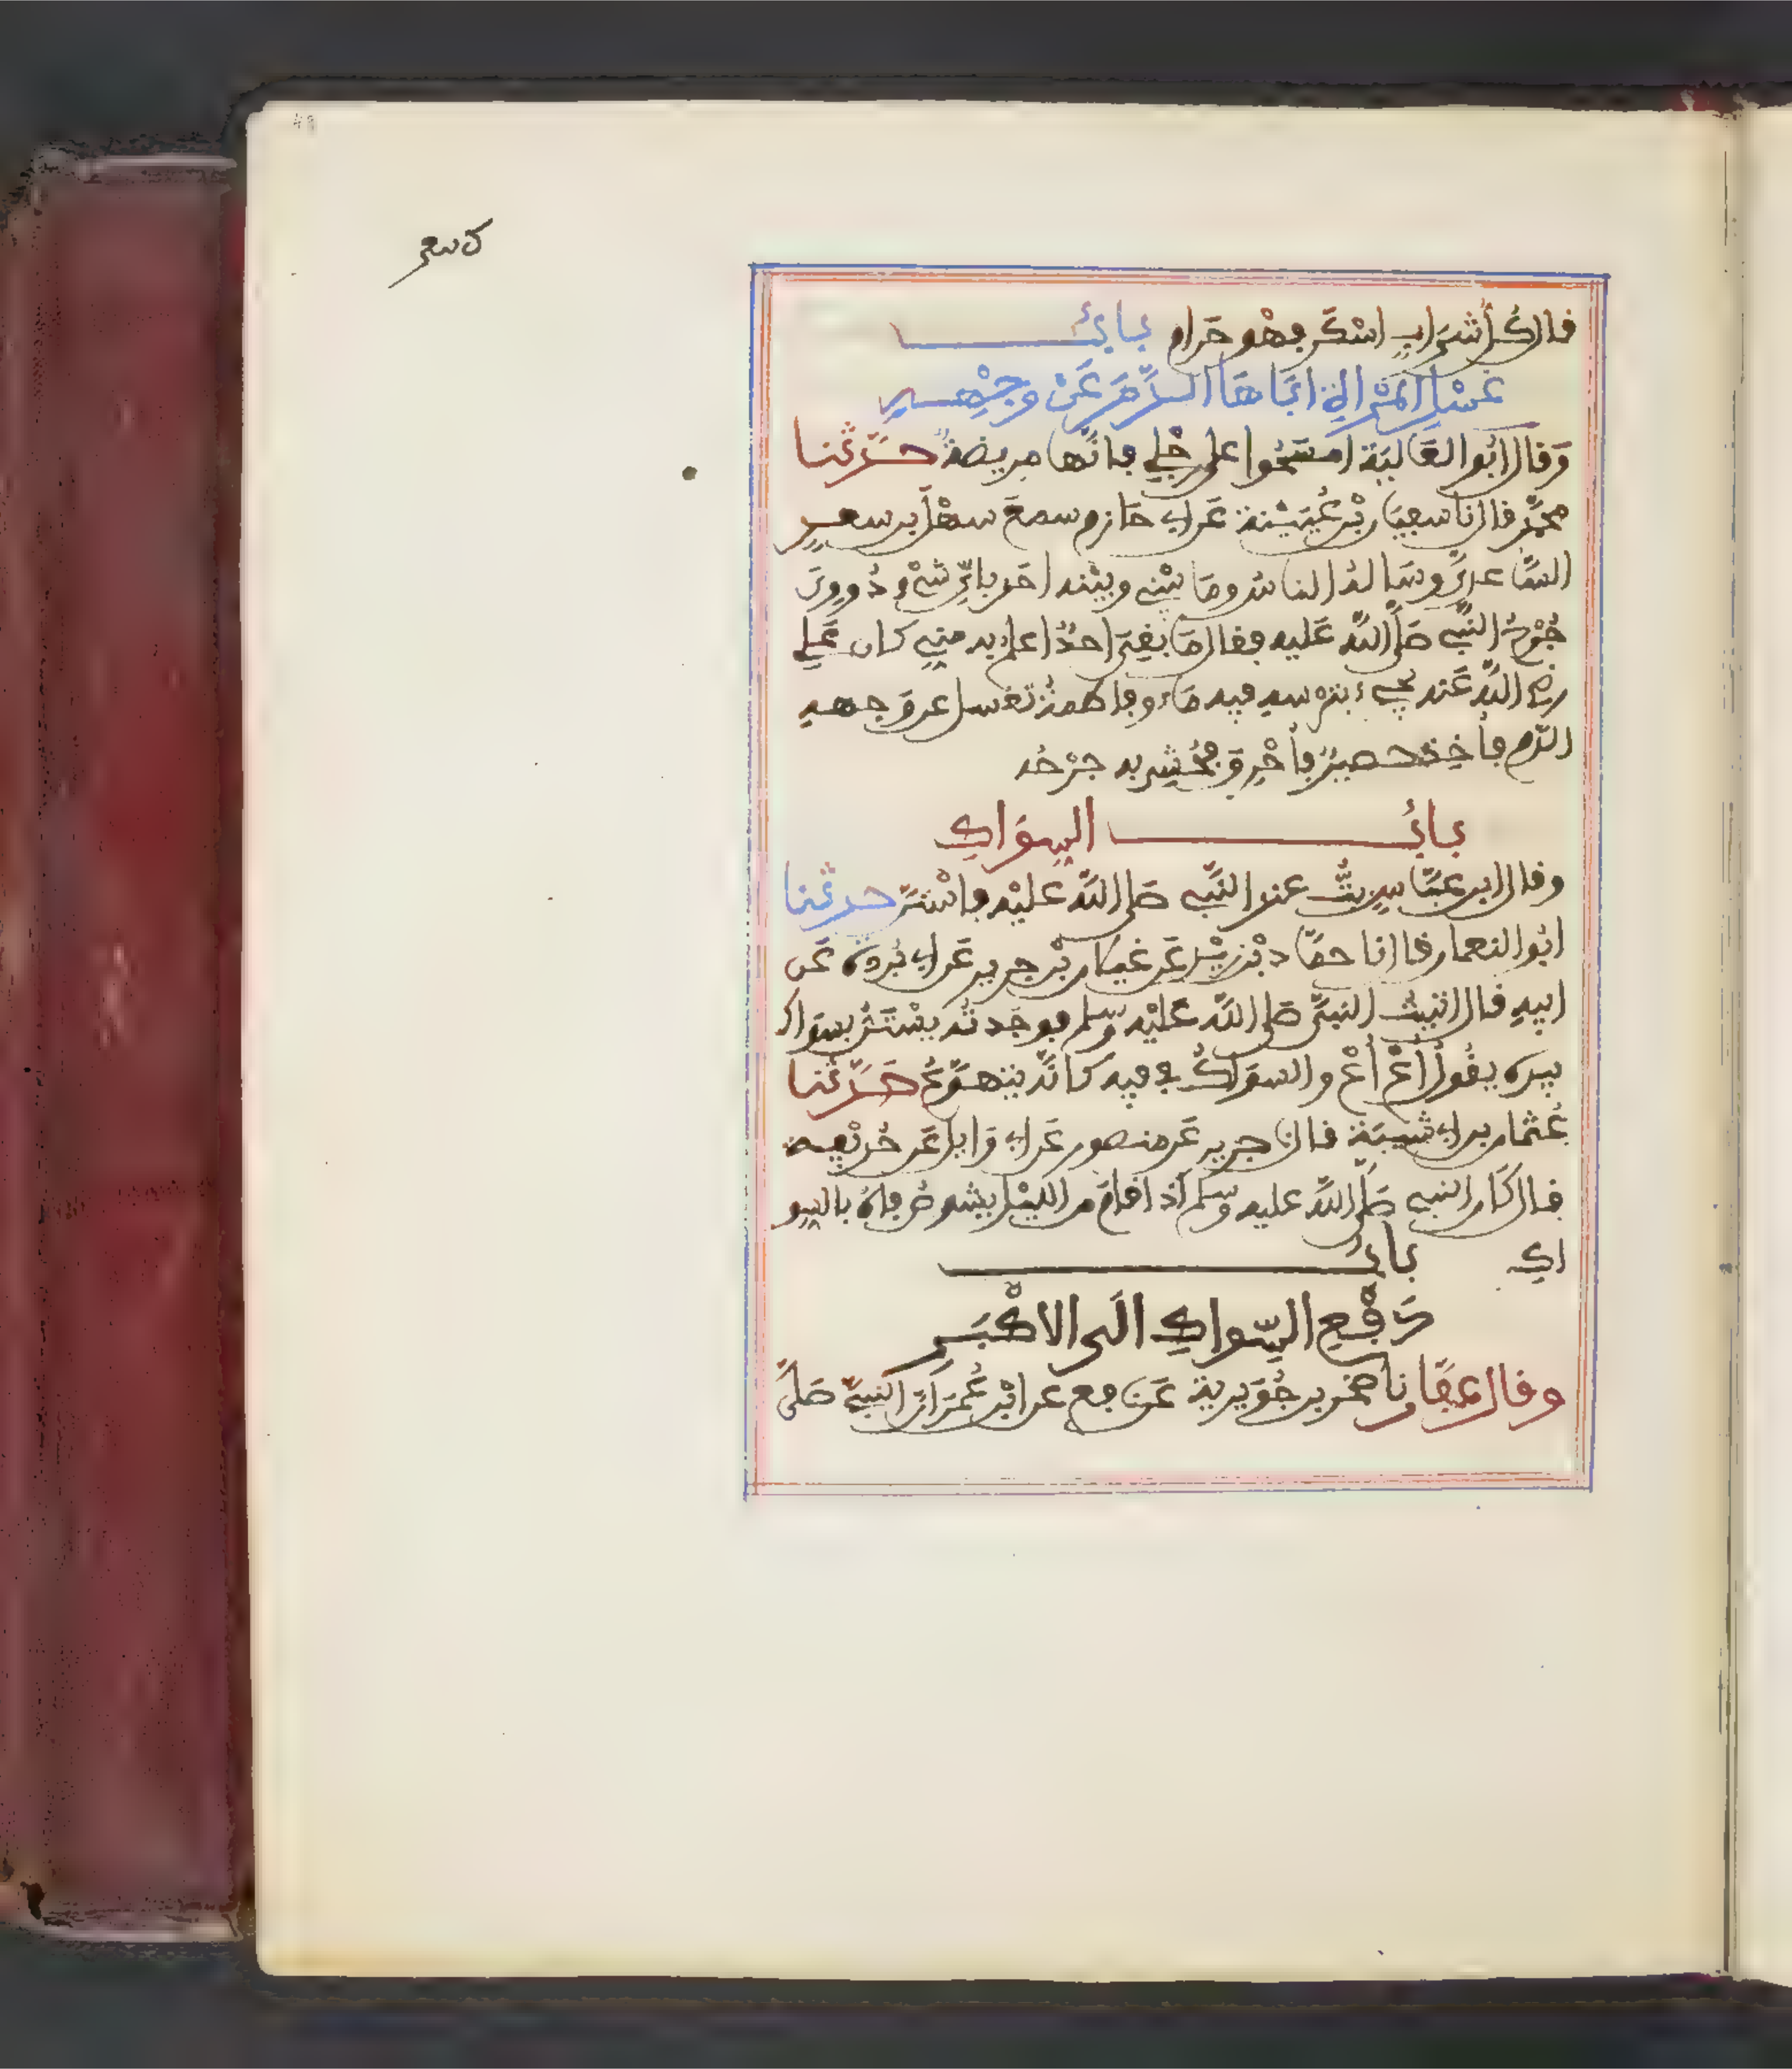 قال كل شراب اسكر فهو حرام باب
غسل المرأة اباها الدم عن وجهه
وقال ابو العالية امسحوا على رجلي فانها مريضة حدثنا
محمد قال نا سفيان بن عيينة عن ابي حازم سمع سهل بن سعد
الساعدي وساله الناس وما بيني وبينه احد باي شيء دووي
جرح النبي صلى الله عليه فقال ما بقي احد اعلم به مني كان علي
رضي الله عنه يجيء بترسه فيه ماء وفاطمة تغسل عن وجهه
الدم فأخذ حصير فأحرق فحشي به جرحه
باب السواك
وقال ابن عباس بت عند النبي صلى الله عليه فاستن حدثنا
ابو النعمان قال نا حماد بن زيد عن غيلان بن جرير عن ابي بردة عن
ابيه قال اتيت النبي صلى الله عليه وسلم فوجدته يستن بسواك
بيده يقول أع أع والسواك في فيه كانه يتهوع حدثنا
عثمان بن ابي شيبة قال نا جرير عن منصور عن ابي وايل عن حذيفة
قال كان النبي صلى الله عليه وسلم اذا قام من الليل يشوص فاه بالسو
اك باب
دفع السواك الى الاكبر
وقال عفان نا صخر بن جويرية عن نافع عن ابن عمر ان النبي صلى